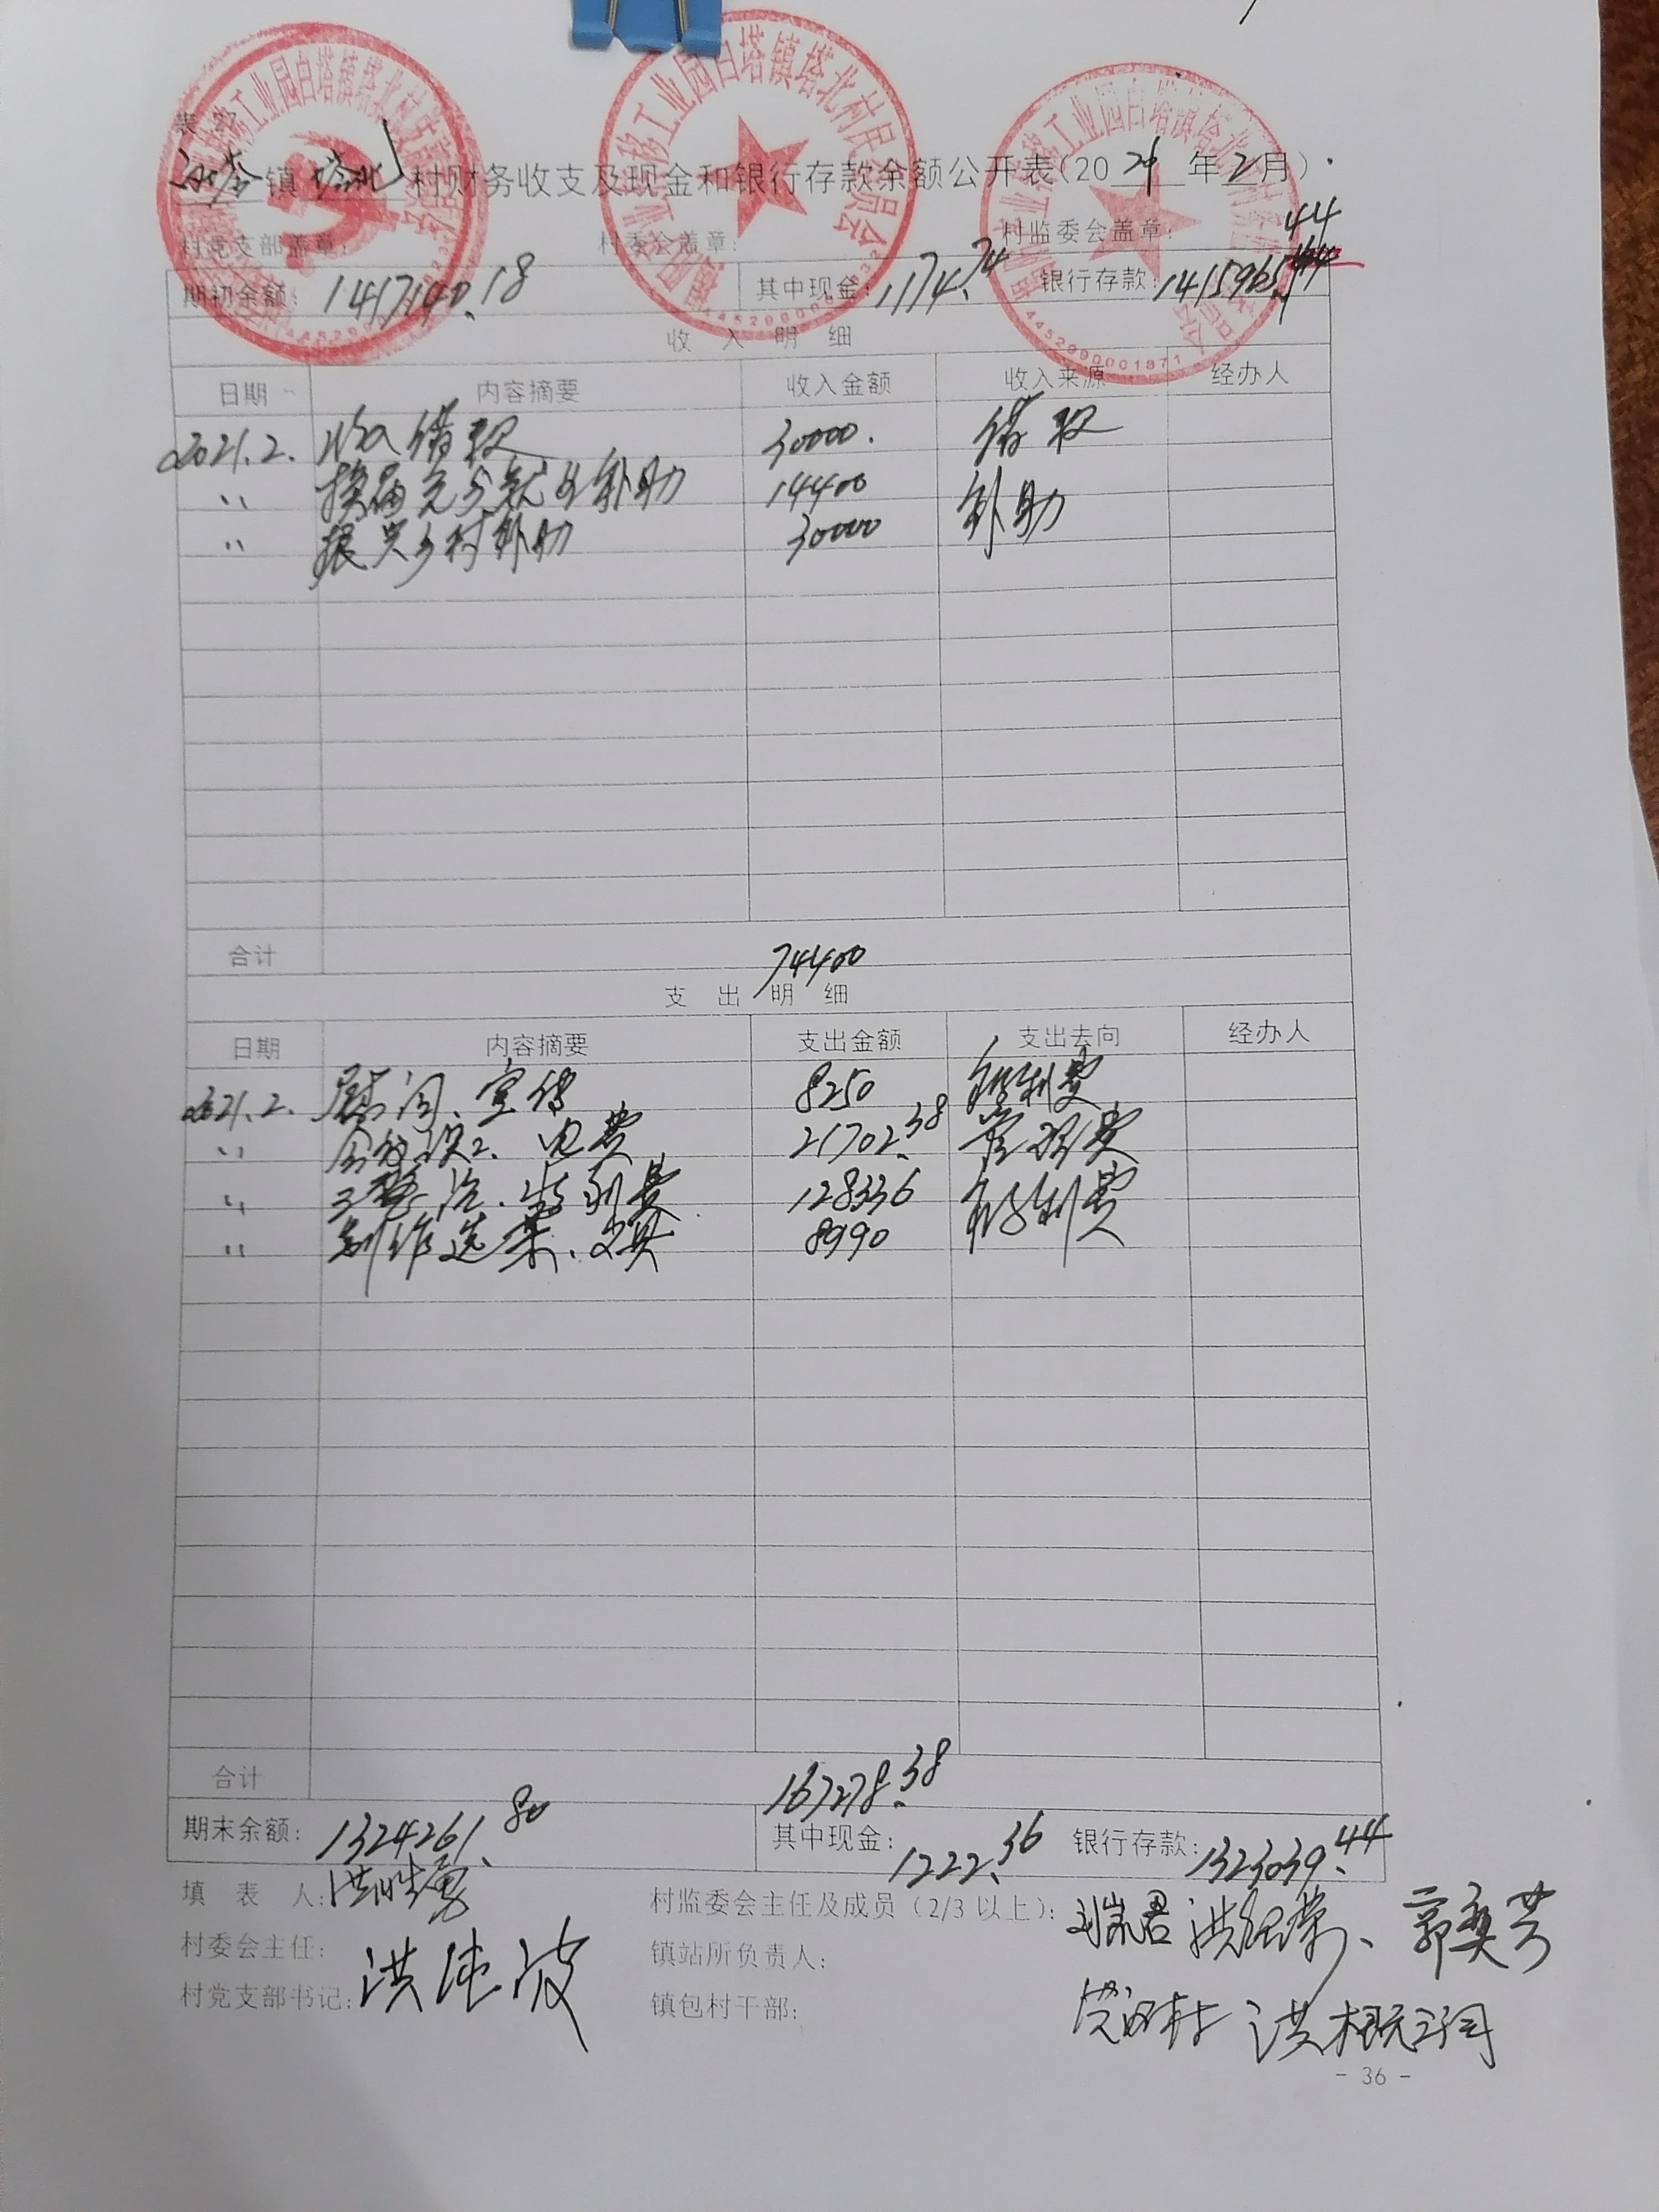 表 27
白塔镇塔北村财务收支及现金和银行存款余额公开表(2021年2月)
村党支部盖章: 村委会盖章: 村监委会盖章:
44
期初余额: 1417140.18 其中现金: 1174.74 银行存款: 1415965.44
收 入 明 细
日期 内容摘要 收入金额 收入来源 经办人
2021.2. 收借款 30000. 借款
〃 补助 14400 补助
〃 振兴乡村补助 30000 补助
合计 74400
支 出 明 细
日期 内容摘要 支出金额 支出去向 经办人
2021.2. 慰问、宣传 8250 福利费
〃 电费 21702.38 管理费
〃 128336 福利费
〃 制作选票、文具 8990 福利费
合计 167278.38
期末余额: 1324261.80 其中现金: 1222.36 银行存款: 1323039.44
填 表 人: 洪 村监委会主任及成员(2/3 以上):
村委会主任: 镇站所负责人:
村党支部书记: 洪 波 镇包村干部:
- 36 -